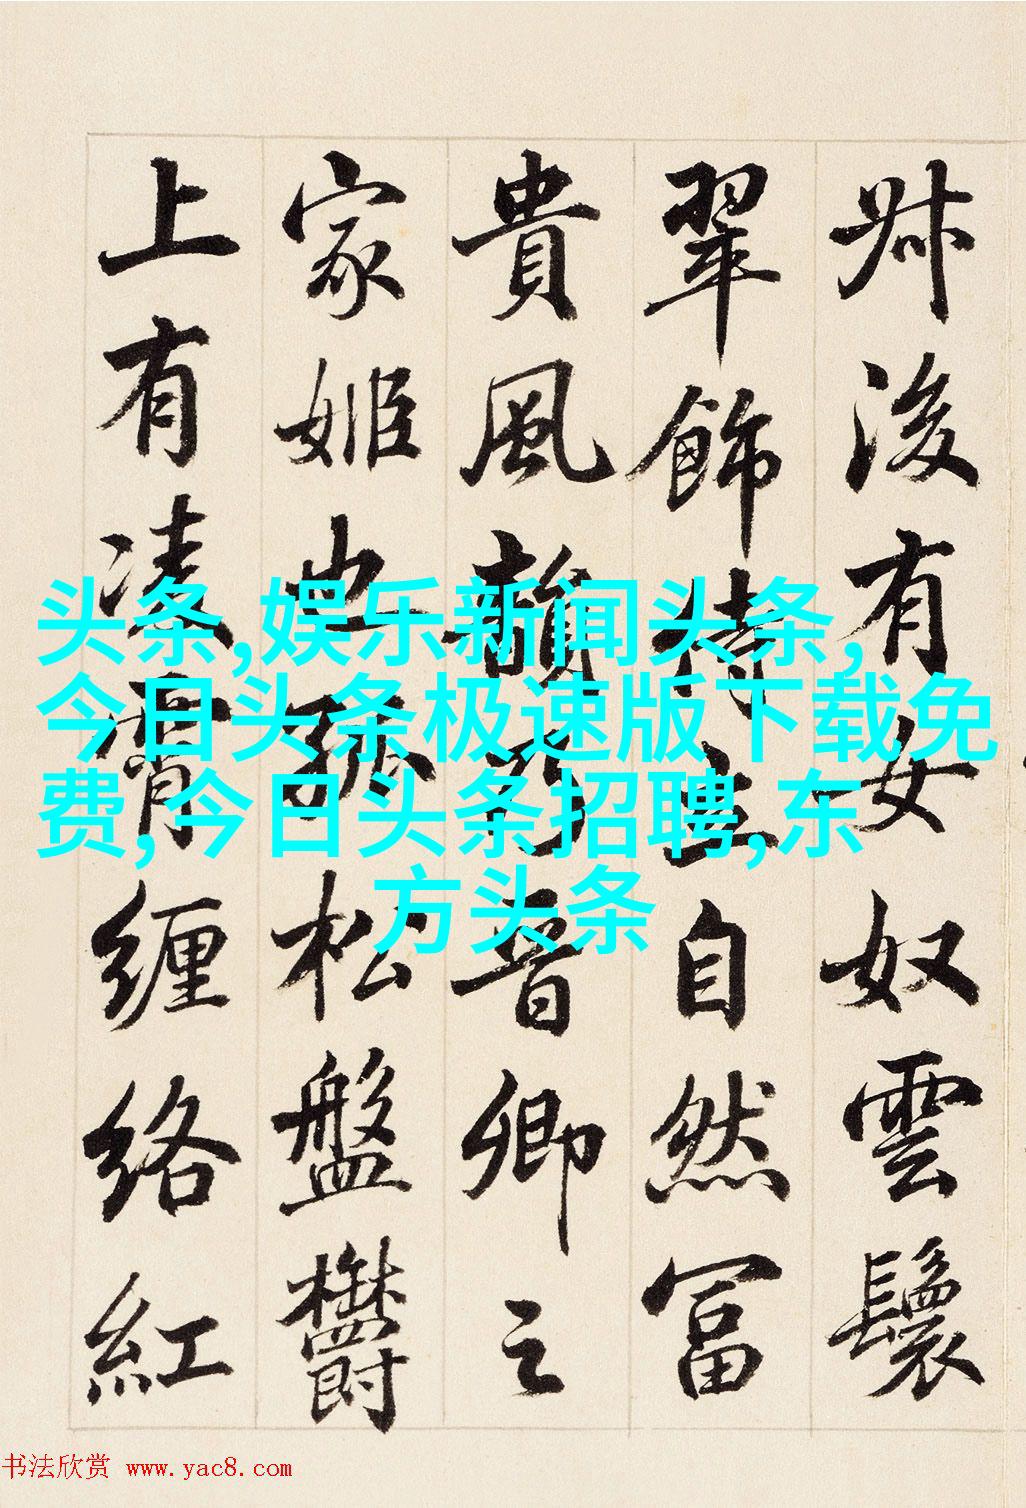 叔後有女奴雲鬟
翠飾侍立自然富
貴風韻乃晉卿之
家姬也孤松盤鬱
上有凌霄纏絡紅
头条,娱乐新闻头条,
今日头条极速版下载免
费,今日头条招聘,东
方头条
书法欣赏 www.yac8.com